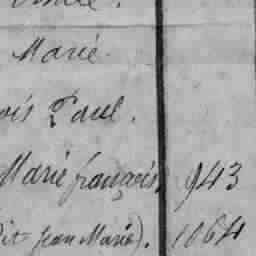 Marie.
ois Paul.
Marie français. 943
dit Jean Marie). 1064